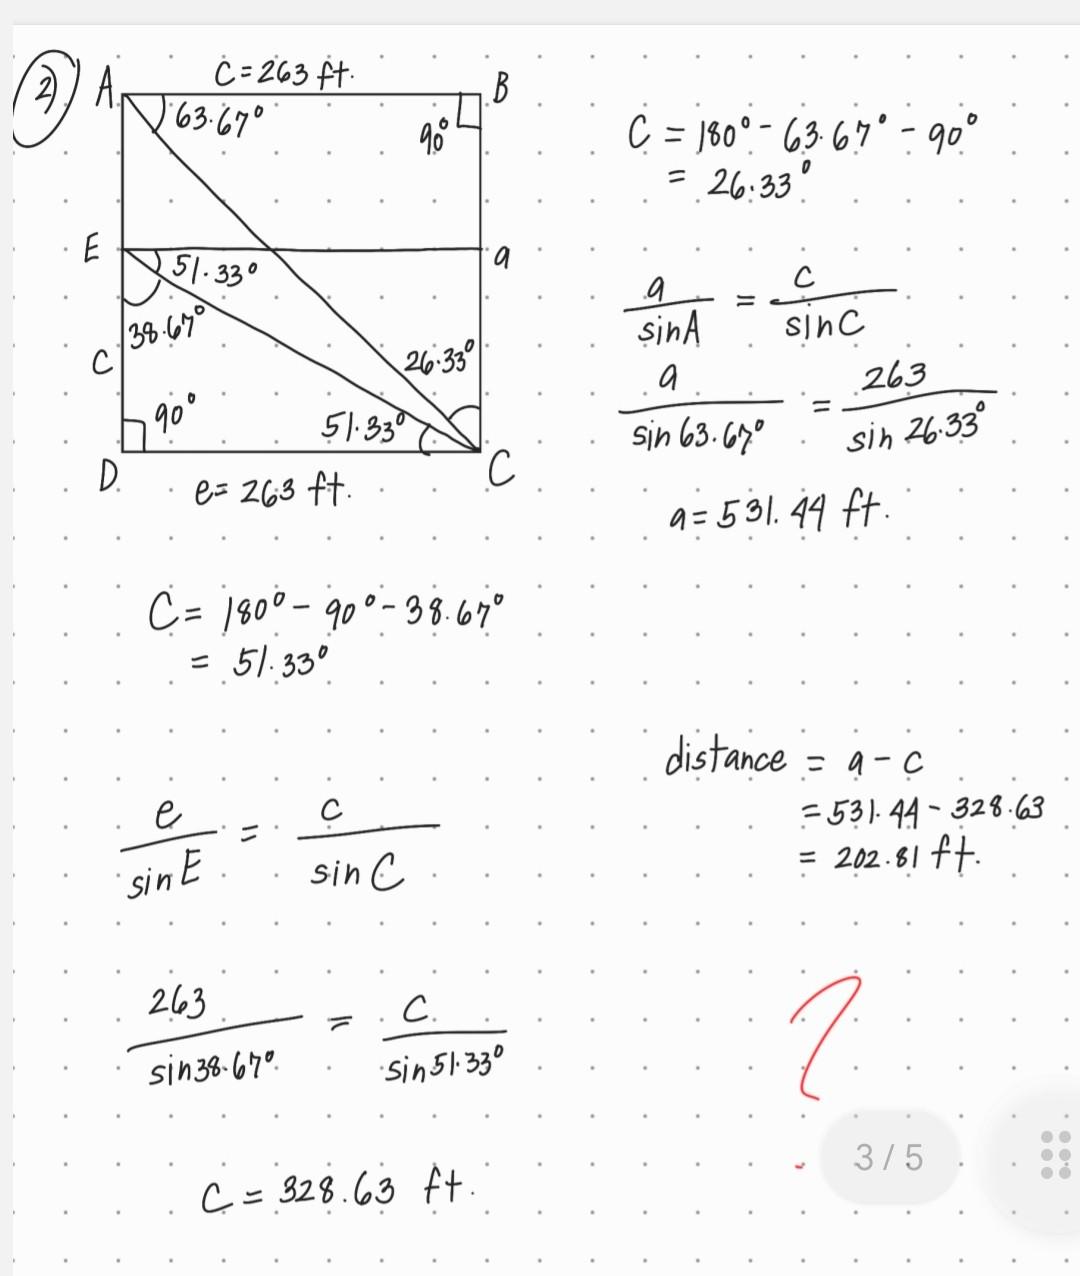 2)
A
C = 263 ft.
B
63.67°
90°
E
51.33°
a
38.67°
C
26.33°
90°
51.33°
D
e = 263 ft.
C
C = 180° - 63.67° - 90°
= 26.33°
a / sin A = c / sin C
a / sin 63.67° = 263 / sin 26.33°
a = 531.44 ft.
C = 180° - 90° - 38.67°
= 51.33°
e / sin E = c / sin C
263 / sin 38.67° = C / sin 51.33°
C = 328.63 ft.
distance = a - c
= 531.44 - 328.63
= 202.81 ft.
?
3 / 5